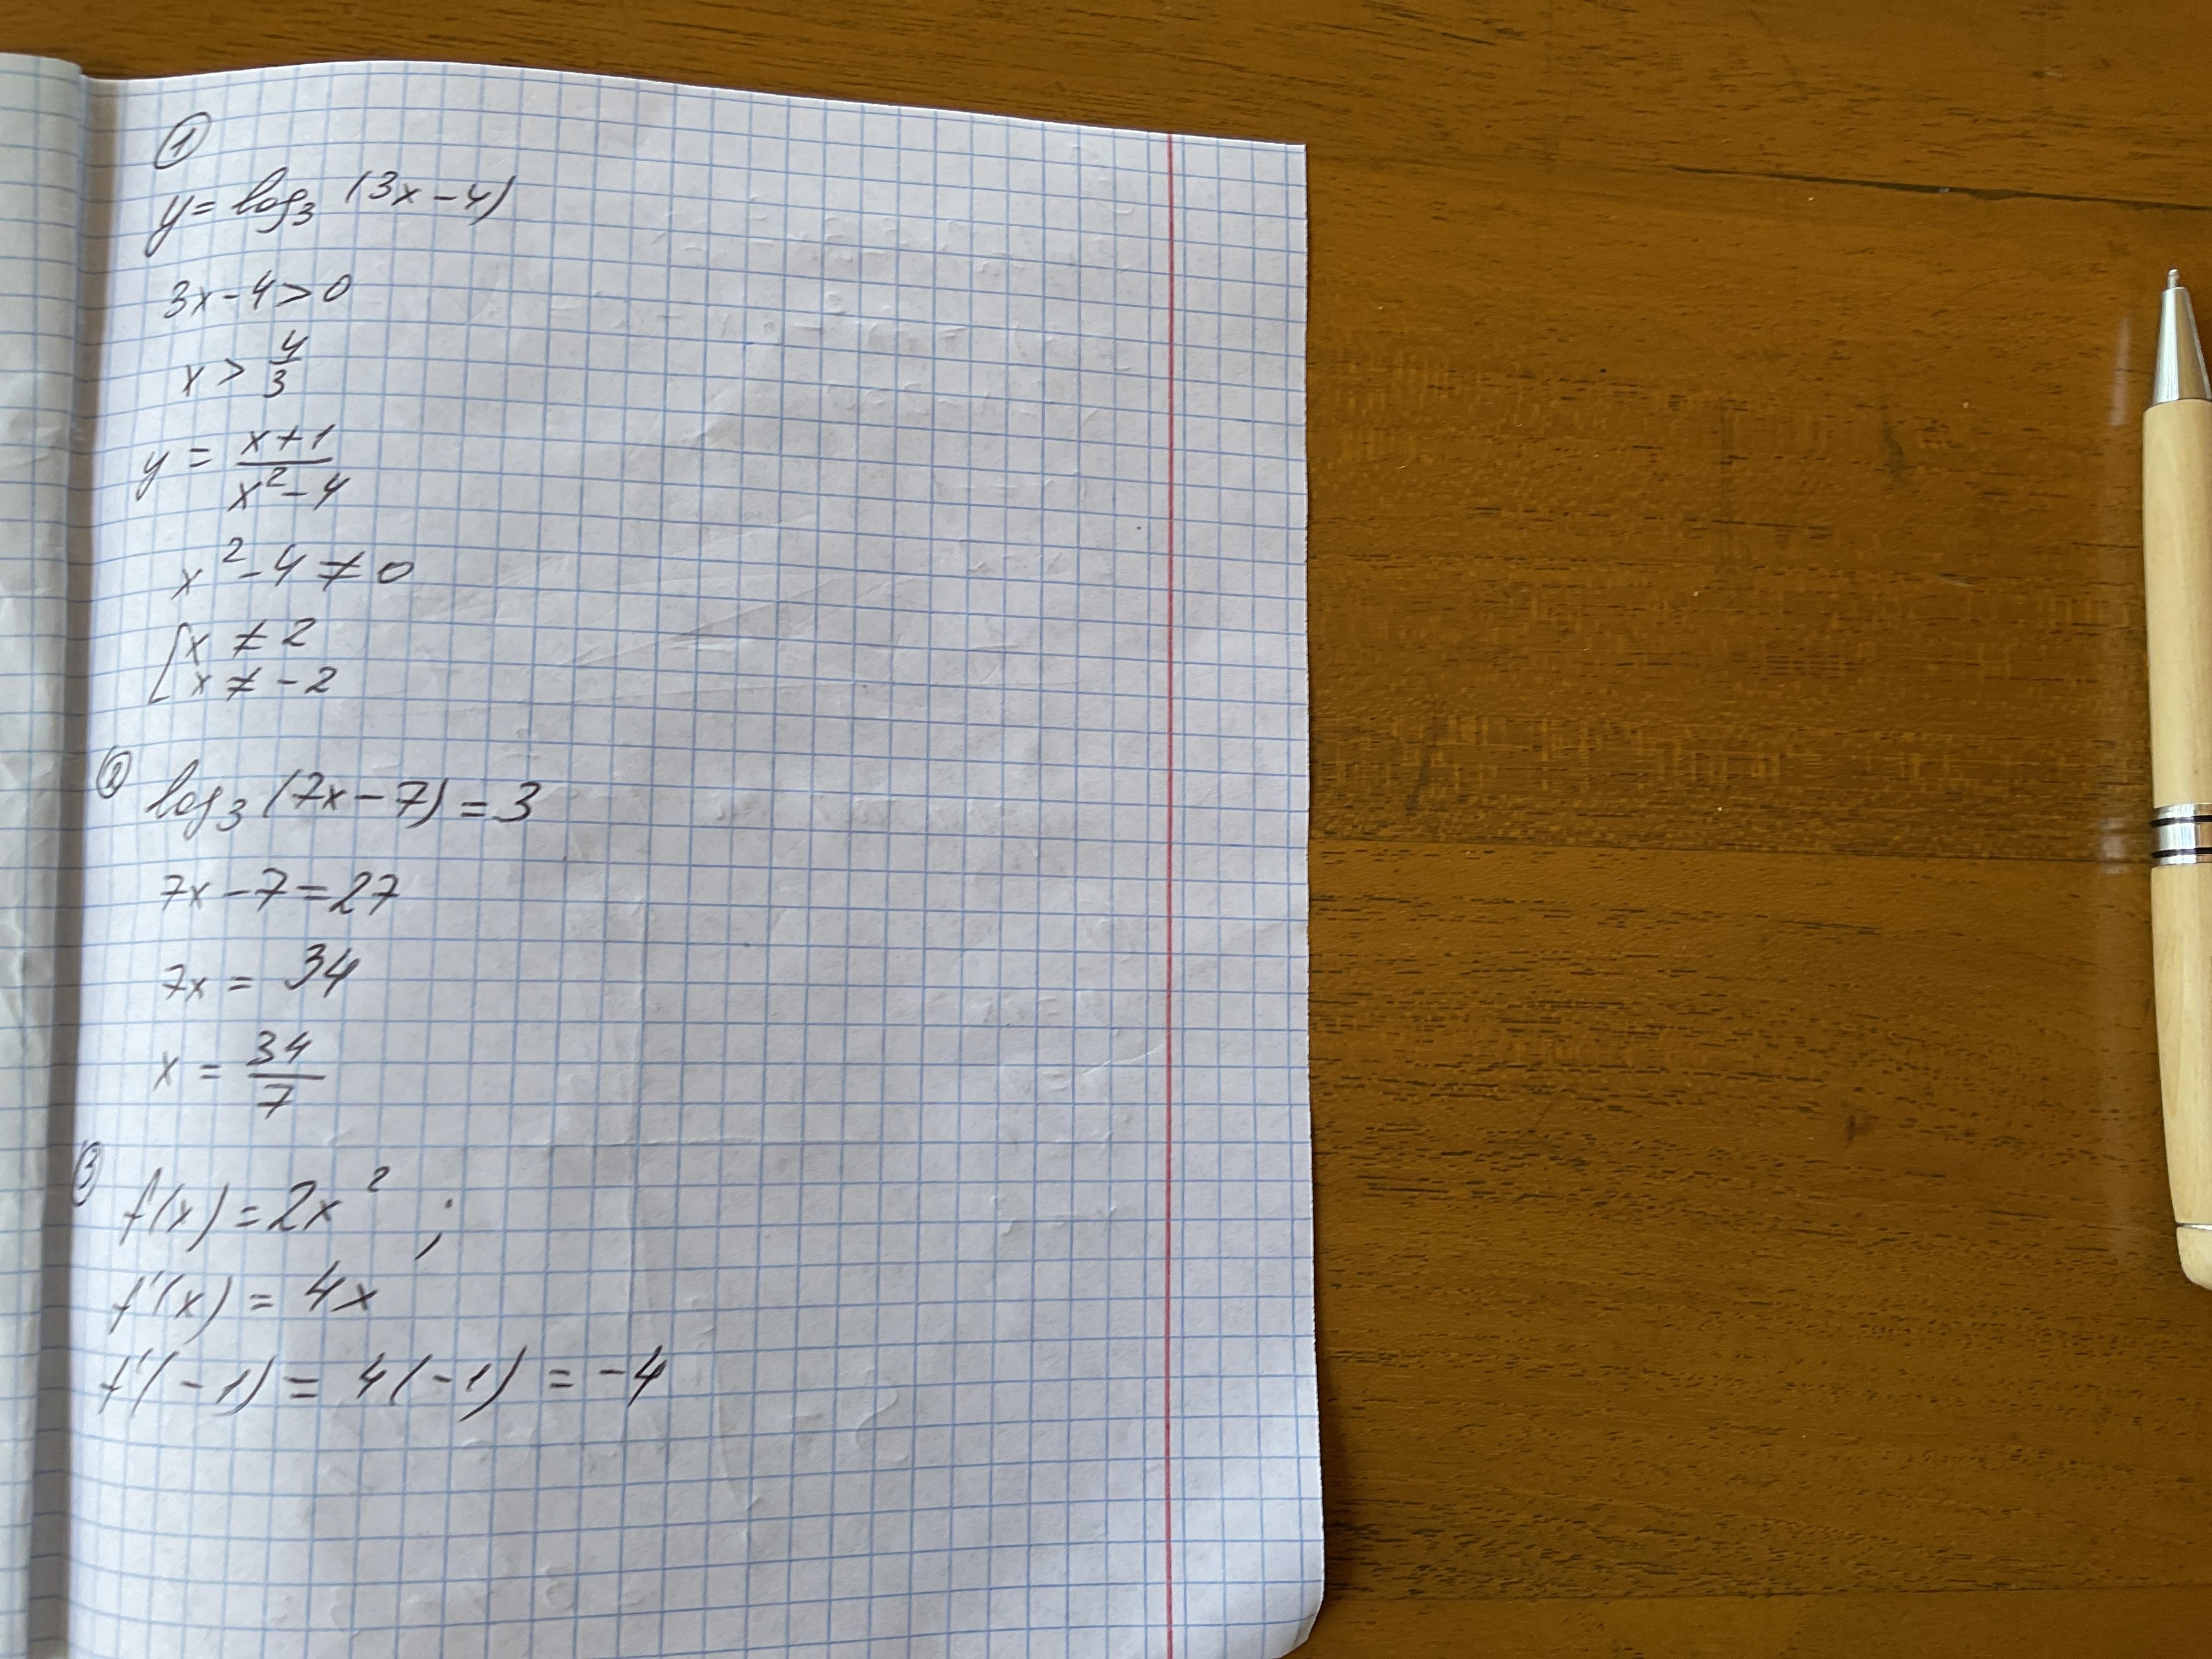 ①
y = log₃ (3x - 4)
3x - 4 > 0
x > 4/3
y = (x + 1)/(x² - 4)
x² - 4 ≠ 0
[x ≠ 2
x ≠ -2
② log₃ (7x - 7) = 3
7x - 7 = 27
7x = 34
x = 34/7
③ f(x) = 2x² ;
f'(x) = 4x
f'(-1) = 4(-1) = -4